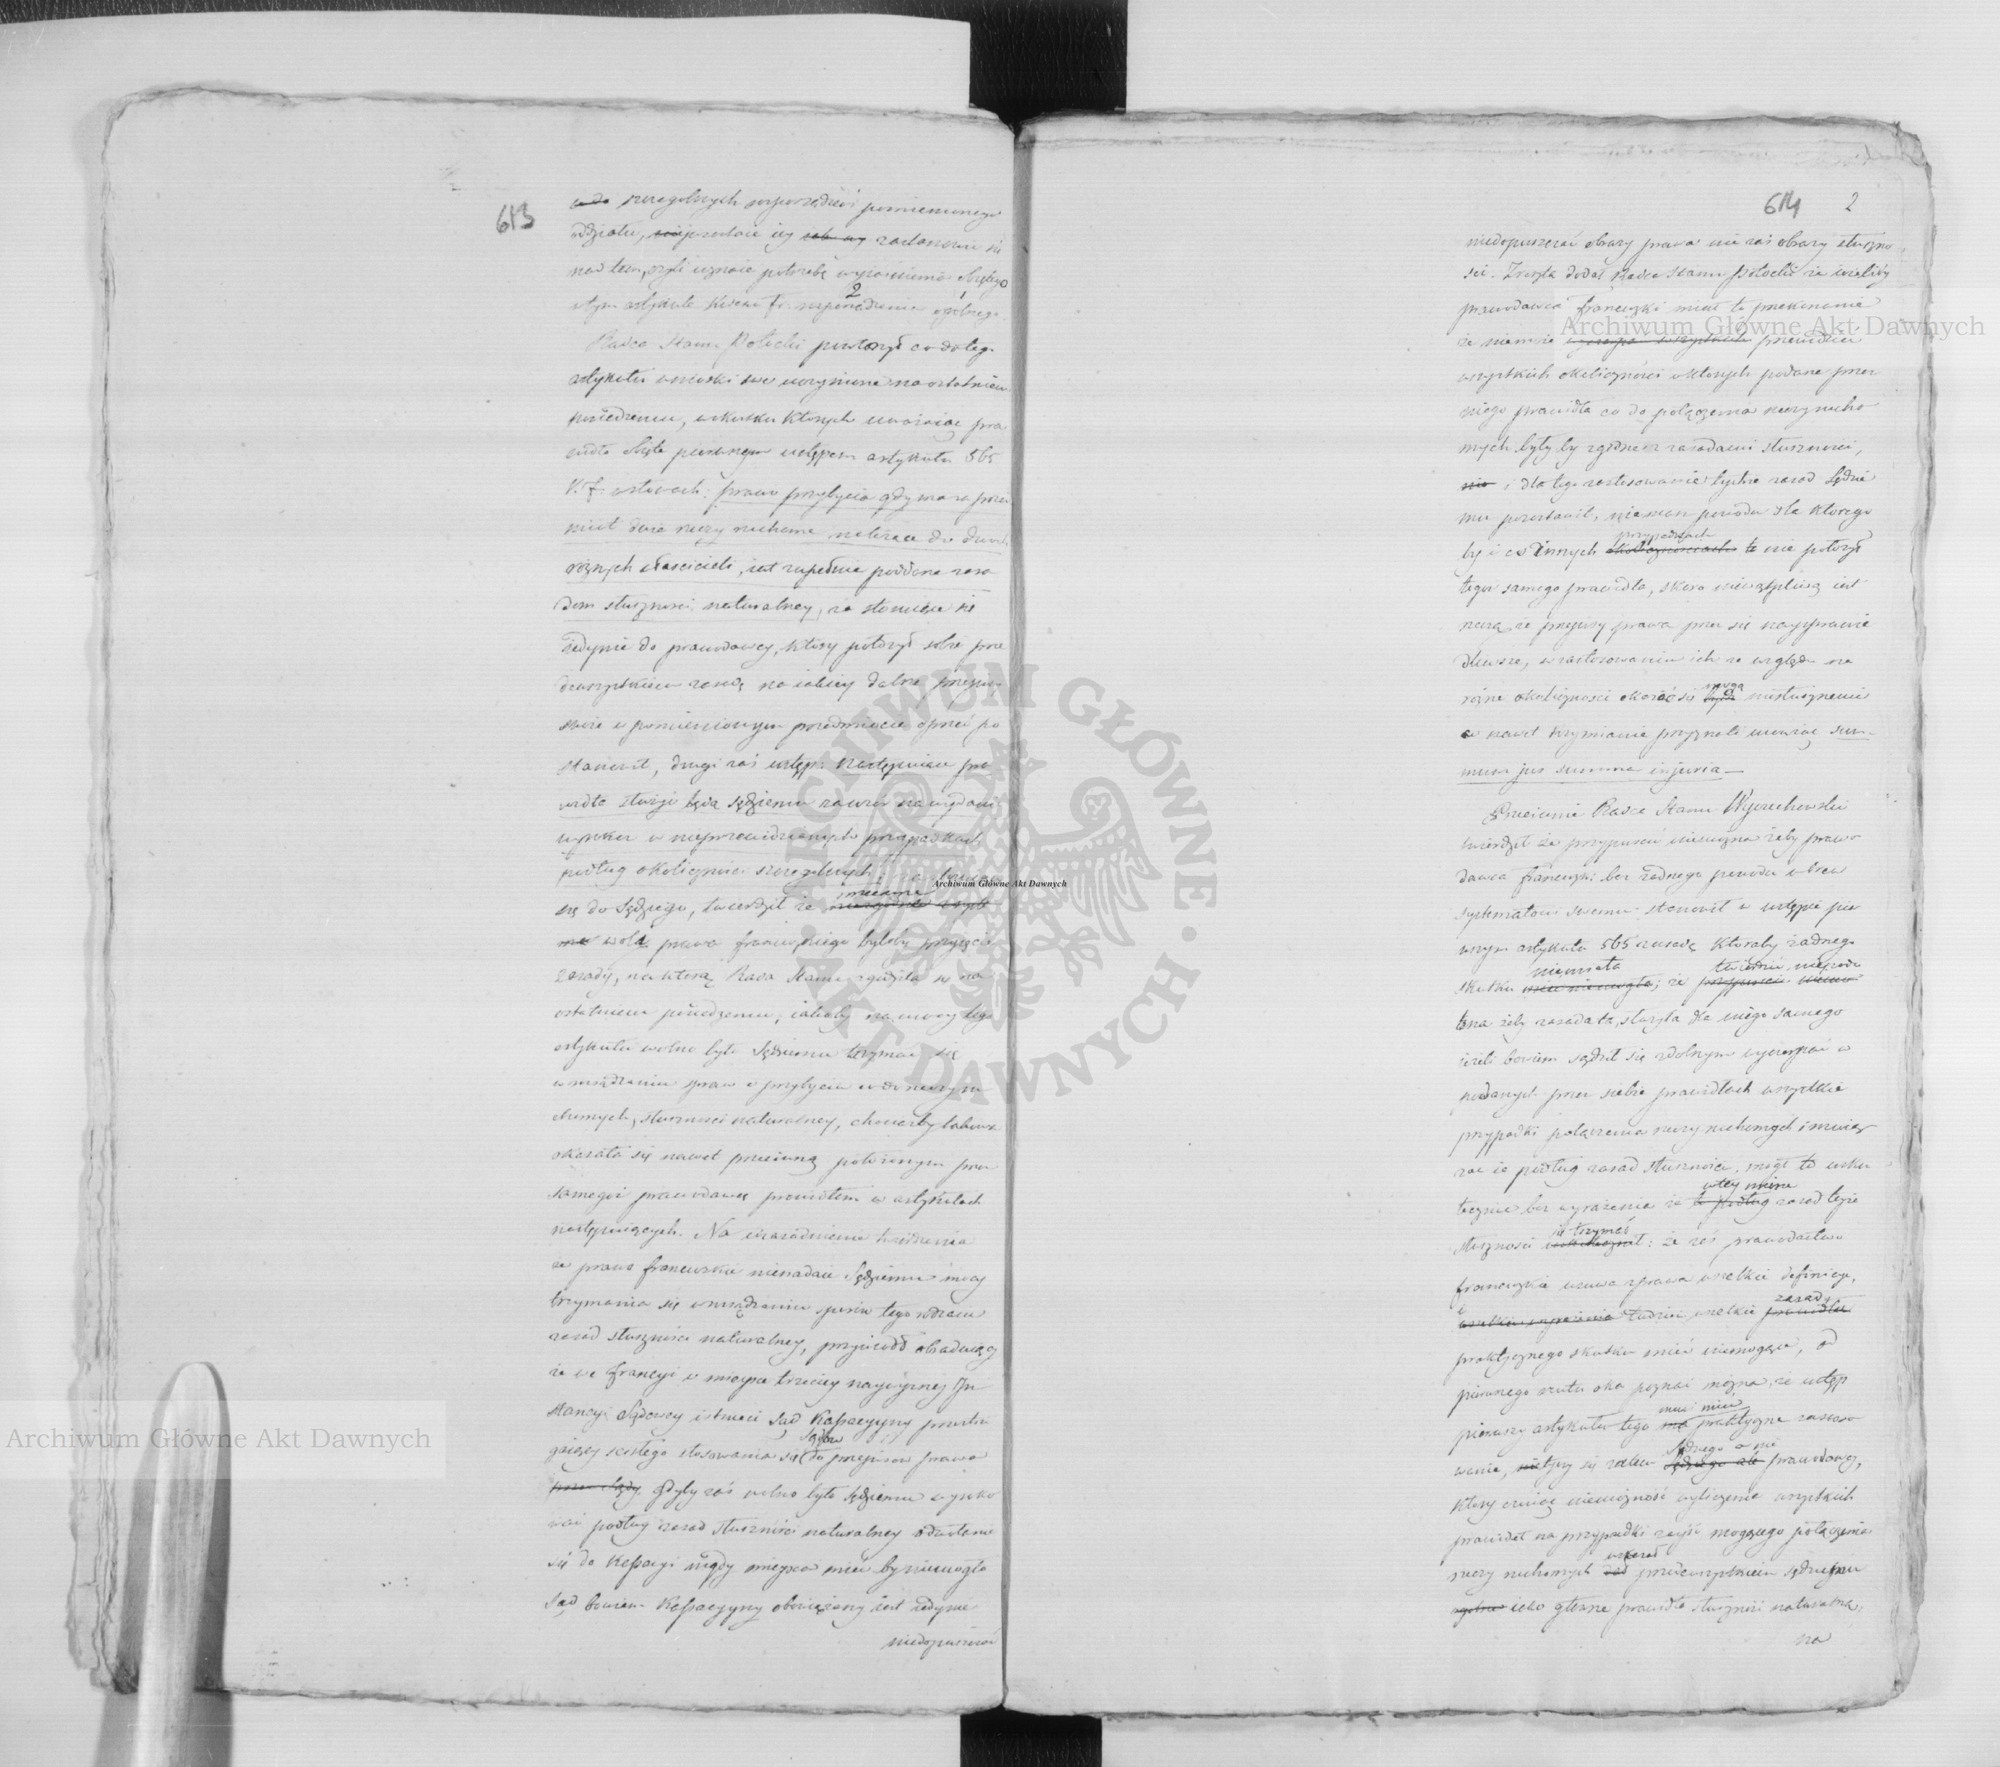 613
szczegolnych rozporządzeń pomienionego
oddziału, pozostaie iey zastanowić się
nad tem, czyli uznaie potrzebę wyiaśnienia obiętego
tym artykułe Kodexu fr. rozporządzenia ogólnego.
Radca Stanu Potocki powtorzył co do tego
artykułu wnioski swe uczynione na ostatniem
posiedzeniu, w skutku ktorych uważaiąc pra
widło obięte pierwszym ustępem artykułu 565
K. f. w słowach: prawo przybycia gdy ma za przed
miot dwie rzeczy ruchome należące do dwoch
rożnych właścicieli, iest zupełnie poddane zasa
dom słuszności naturalney, za stosuiące się
iedynie do prawodawcy, ktory położył sobie prze
dewszystkiem zasadę na iakiey dalsze przepisy
swoie w pomienionym przedmiocie oprzeć po
stanowił, drugi zaś ustęp: Następuiące pra
widła służyć będą sędziemu za wzór na wydanie
wyroku w nieprzewidzianych przypadkach
podług okoliczności szczególnych; za stosuiący
się do Sędziego, twierdził że mieanie
wolą prawa francuskiego byłoby przyięcie
zasady, na ktorą Rada Stanu zgodziła się na
ostatniem posiedzeniu, iakoby na mocy tego
artykułu wolno było Sędziemu trzymać się
w rozsądzaniu spraw o przybycie co do rzeczy ru
chomych, słuszności naturalney, chociażby takowa
okazała się nawet przeciwną położonym przez
samegoż prawodawcę prawidłom w artykułach
następuiących. Na uzasadnienie twierdzenia
że prawo francuskie nienadaie Sędziemu mocy
trzymania się w rozsądzaniu sporów tego rodzaiu
zasad słuszności naturalney, przywiodł okoliczność
że we Francyi w mieysce trzeciey naywyższey In
stancyi Sądowey istnieie Sąd Kassacyyny przestrze
gaiący scisłego stosowania się Sądów do przepisów prawa
Gdyby zaś wolno było Sędziemu wyroko
wać podług zasad słuszności naturalney odwołanie
się do Kassacyi nigdy mieysca mieć by niemogło
Sąd bowiem Kassacyyny obowiązany iest iedynie
niedopuszczać
614 2
niedopuszczać obrazy prawa nie zaś obrazy słuszno
ści. Zresztą dodał Radca Stanu Potocki że ieżeliby
prawodawca francuzki miał to przekonanie
że niemoże przewidzieć
wszystkich okoliczności w ktorych podane przez
niego prawidła co do połączenia rzeczy rucho
mych byłyby zgodne z zasadami słuszności,
i dla tego zastosowanie tychże zasad Sędzie
mu pozostawił, niemasz powodu dla ktorego
by i co innych przypadkach te nie położył
tegoż samego prawidła, skoro niewątpliwą iest
rzeczą że przepisy prawa przez się naysprawie
dliwsze, w zastosowaniu ich ze względu na
rożne okoliczności okazać się mogą niesłusznemi
co nawet rzymianie przyznali mowiąc sum=
mum jus summa injuria —
Przeciwnie Radca Stanu Wyczechowski
twierdził że przypuścić niemożna żeby prawo
dawca francuski bez żadnego powodu wbrew
systematowi swemu stanowił w ustępie pier
wszym artykułu 565 zasadę ktoraby żadnego
skutku niemiała; że twierdzić niepodo
bna żeby zasada ta służyła dla niego samego
ieżeli bowiem sądził się zdolnym wyczerpać w
podanych przez siebie prawidłach wszystkie
przypadki połączenia rzeczy ruchomych i rozwią
zać ie podług zasad słuszności, mógł to usku
tecznić bez wyrażenia że w tey mierze zasad teyże
słuszności się trzymać: że zaś prawodastwo
francuzkie usuwa z prawa wszelkie definicye,
tudzież wszelkie zasady
praktycznego skutku mieć niemogące, od
pierwszego rzutu oka poznać można, że ustęp
pierwszy artykułu tego musi mieć praktyczne zastoso
wanie, tyczy się zatem Sędziego a nie prawodawcy,
ktory czuiąc niemożność wyliczenia wszystkich
prawideł na przypadki zayść mogącego połączenia
rzeczy ruchomych wskazał przedewszystkiem sędziemu
iako główne prawidło słuszność naturalną,
na
Archiwum Główne Akt Dawnych
Archiwum Główne Akt Dawnych
Archiwum Główne Akt Dawnych
ARCHIWUM GŁÓWNE · AKT DAWNYCH ·